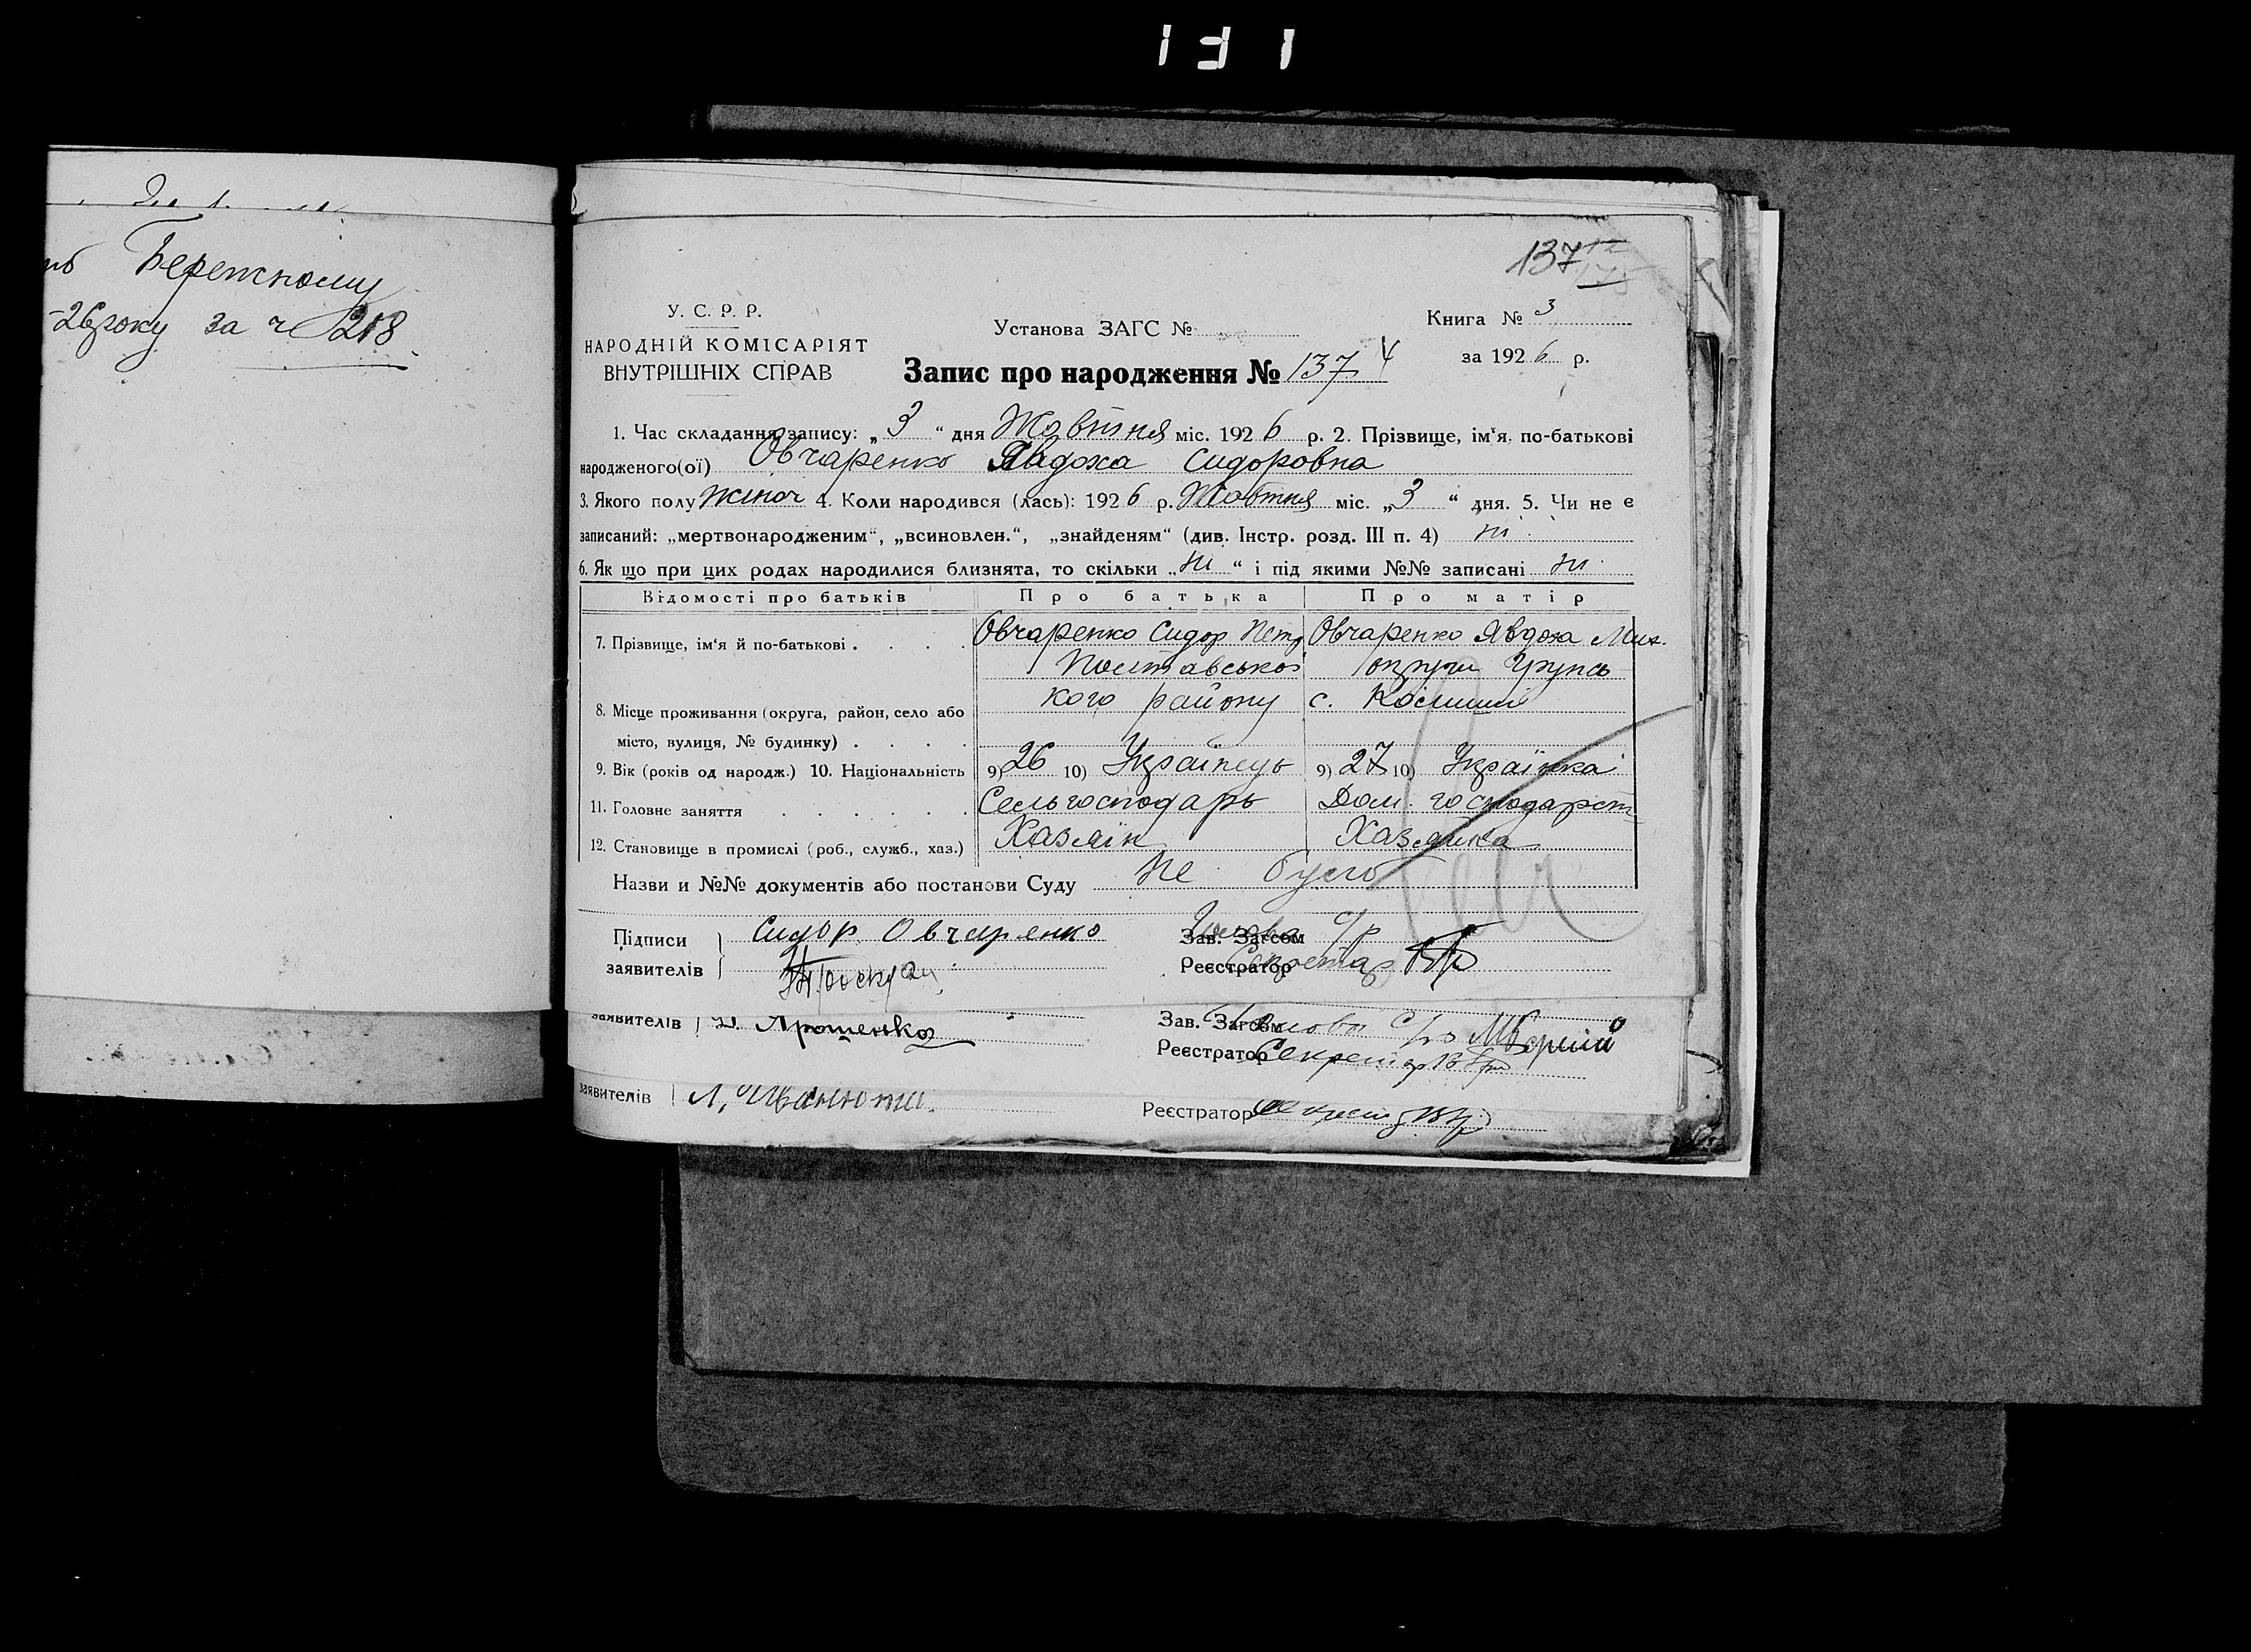 131
Бережному
-26 року за ч 218
137
У. С. Р. Р.
НАРОДНІЙ КОМІСАРІЯТ
ВНУТРІШНІХ СПРАВ
Установа ЗАГС №
Книга № 3
за 1926 р.
Запис про народження № 137 4
1. Час складання запису: „ 3 “ дня Жовтня міс. 1926 р. 2. Прізвище, ім'я, по-батькові
народженого(ої) Овчаренко Явдоха Сидоровна
3. Якого полу жіноч 4. Коли народився (лась): 1926 р. Жовтня міс. „ 3 “ дня. 5. Чи не є
записаний: „мертвонародженим“, „всиновлен.“, „знайденям“ (див. Інстр. розд. III п. 4) ні
6. Як що при цих родах народилися близнята, то скільки „ ні “ і під якими №№ записані ні
Відомості про батьків Про батька Про матір
7. Прізвище, ім'я й по-батькові . . . . Овчаренко Сидор Петр Овчаренко Явдоха Мих.
Полтавської округи Грунсь
кого району с.
8. Місце проживання (округа, район, село або
місто, вулиця, № будинку) . . . .
9. Вік (років од народж.) 10. Національність 9) 26 10) Українець 9) 27 10) Українка
11. Головне заняття . . . . . . Сельгосподарь Дом. господарст
12. Становище в промислі (роб., служб., хаз.) Хазяін Хазяйка
Назви и №№ документів або постанови Суду не було
Підписи
заявителів
Сидор Овчаренко
Зав. Загсом Голова с/р
Реєстратор Секретар
заявителів Ярошенко
Зав. Загсом Голова с/р
Реєстратор Секретар
заявителів
Реєстратор